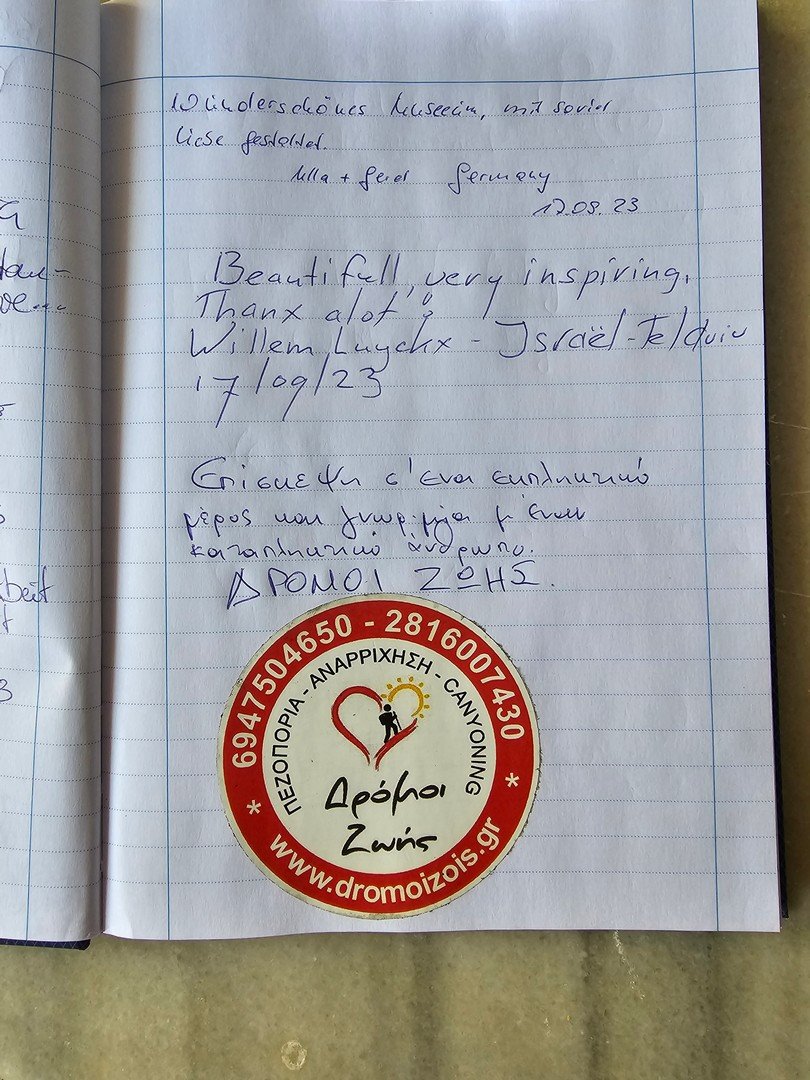 Wunderschönes Museum, mit soviel
Liebe gestaltet.
Ulla + Gerd Germany
17.09.23
Beautifull, very inspiring.
Thanx alot!
Willem Luyckx - Israël - Telaviv
17/09/23
Επίσκεψη σ'ένα εκπληκτικό
μέρος και γνωριμία μ'έναν
καταπληκτικό άνθρωπο.
ΔΡΟΜΟΙ ΖΩΗΣ.
6947504650 - 2816007430
ΠΕΖΟΠΟΡΙΑ - ΑΝΑΡΡΙΧΗΣΗ - CANYONING
Δρόμοι
Ζωής
* www.dromoizois.gr *
beit
3